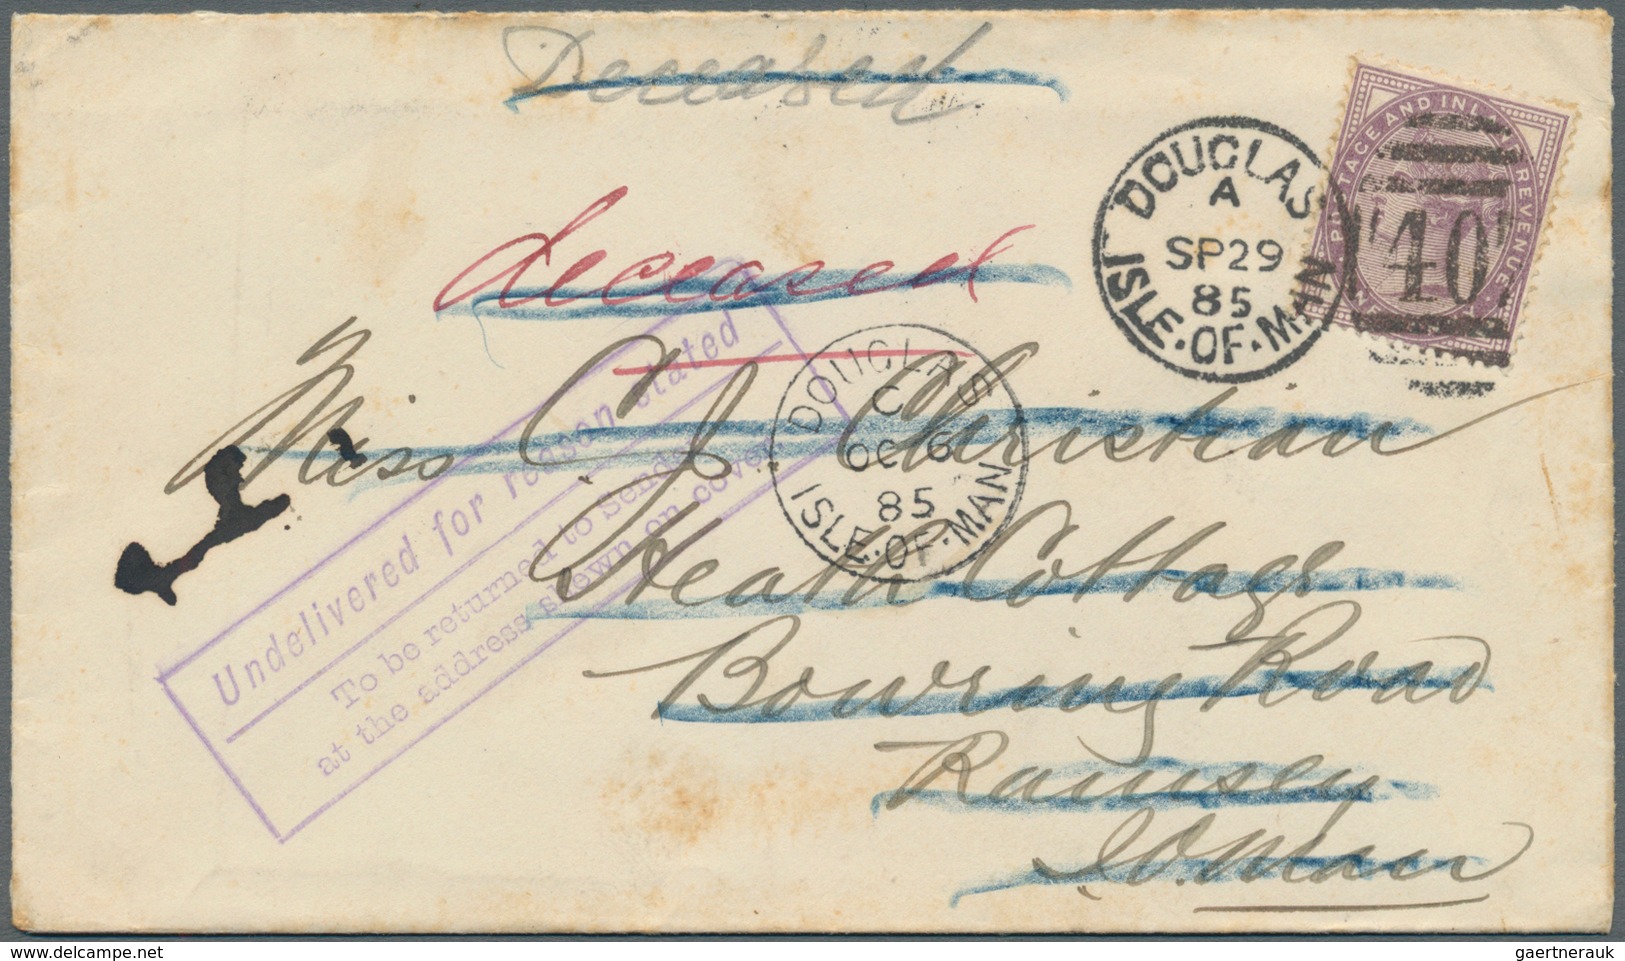 Deceased
deceased
POSTAGE AND INLAND REVENUE
"407"
DOUGLAS
A
SP 29
85
ISLE.OF.MAN
DOUGLAS
C
OC 6
85
ISLE.OF.MAN
Miss C. J. Christian
Heath Cottage
Bowring Road
Ramsey
I. O. Man
Undelivered for reason stated
To be returned to Sender
at the address shewn on cover
gaertnerauk